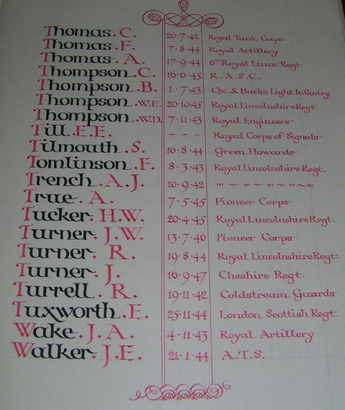 Thomas. C. 20·7·42 Royal Tank Corps
Thomas. F. 7·8·44 Royal Artillery
Thomas. A. 17·9·44 6th Royal Lincs. Regt.
Thompson. C. 16·6·45 R.A.S.C.
Thompson. B. 1·7·43 Ox. & Bucks Light Infantry
Thompson. W.E. 20·10·45 Royal Lincolnshire Regt.
Thompson. W.D. 7·11·43 Royal Engineers
Till. E.E. - - - Royal Corps of Signals
Tilmouth. S. 16·8·44 Green Howards
Tomlinson. F. 8·3·43 Royal Lincolnshire Regt.
Trench. A.J. 10·9·42 " - " - " - " - "
True. A. 7·5·45 Pioneer Corps
Tucker. H.W. 20·4·45 Royal Lincolnshire Regt.
Turner. J.W. 13·7·46 Pioneer Corps
Turner. R. 19·8·44 Royal Lincolnshire Regt.
Turner. J. 16·9·47 Cheshire Regt.
Turrell. R. 19·11·42 Coldstream Guards
Tuxworth. E. 25·11·44 London Scottish Regt.
Wake. J.A. 4·11·43 Royal Artillery
Walker. J.E. 21·1·44 A.T.S.